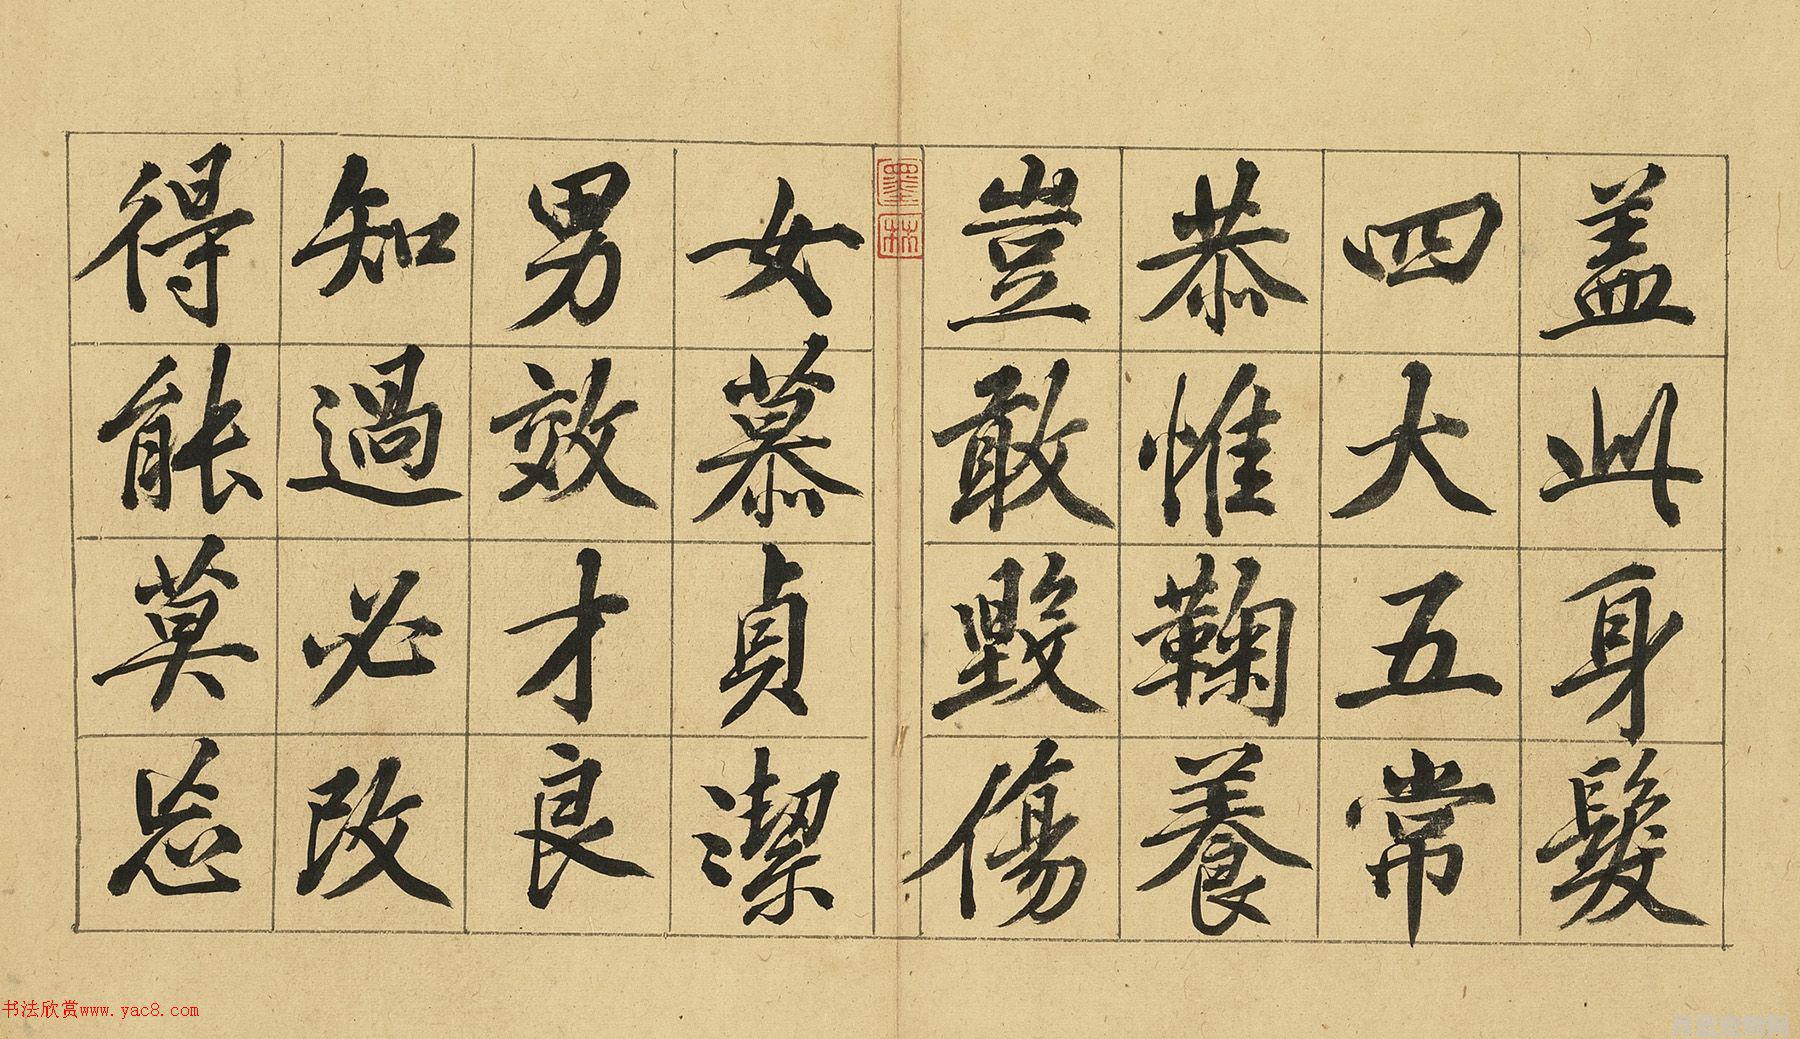 盖此身髮
四大五常
恭惟鞠養
豈敢毀傷
墨林
女慕貞潔
男效才良
知過必改
得能莫忘
书法欣赏www.yac8.com